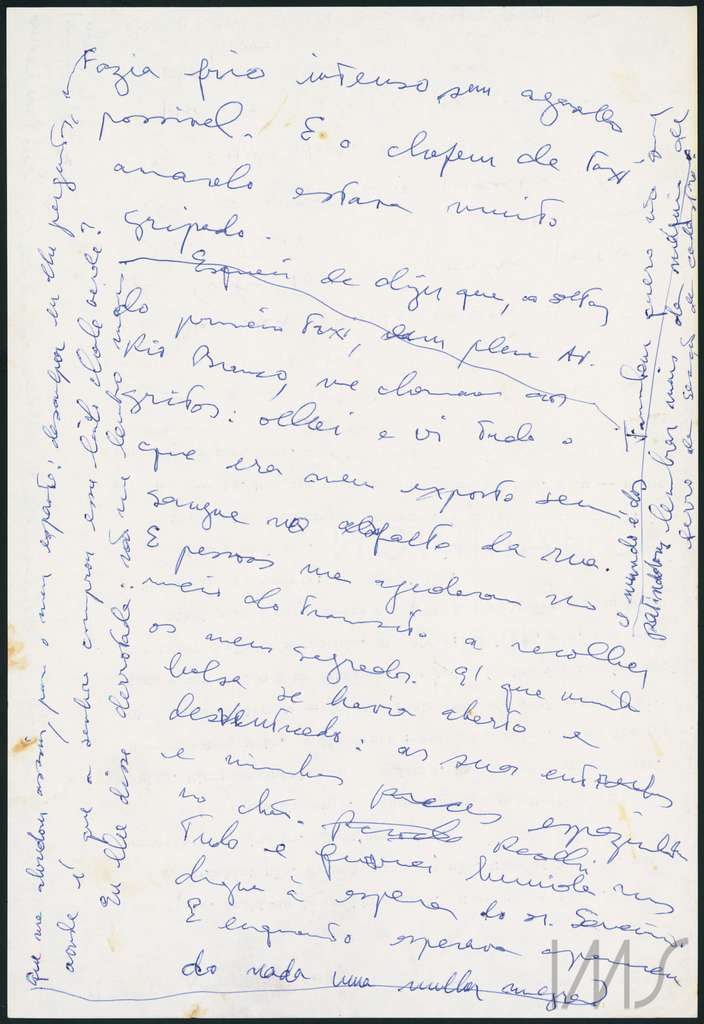 Fazia frio intenso, sem agasalho
possível. E o chofem de taxi
amarelo estava muito
gripado.
Esqueci de dizer que, ao saltar
do primeiro taxi, em plena Av.
Rio Branco, me chamaram aos
gritos: olhei e vi tudo o
que era meu exposto sem
sangue no asfalto da rua.
E pessoas me ajudaram no
meio do transito a recolher
os meus segredos. q! que minha
bolsa se havia aberto e
desventrado: as suas entranhas
e minhas preces espojadas
no chão. Recolhi
tudo e fiquei humilde mas
digna à espera do sr. Severino.
E enquanto esperava apareceu
do nada uma mulher magra
que me abordou assim, para o meu espanto: desculpa eu lhe perguntar,
aonde é que a senhora comprou esse lindo chale verde?
Eu lhe disse derrotada: não me lembro mais.
e mundo é dos
Tambem quero não
patinadores lembrar mais da máquina de
ferro da secção de cadastro.
IMS